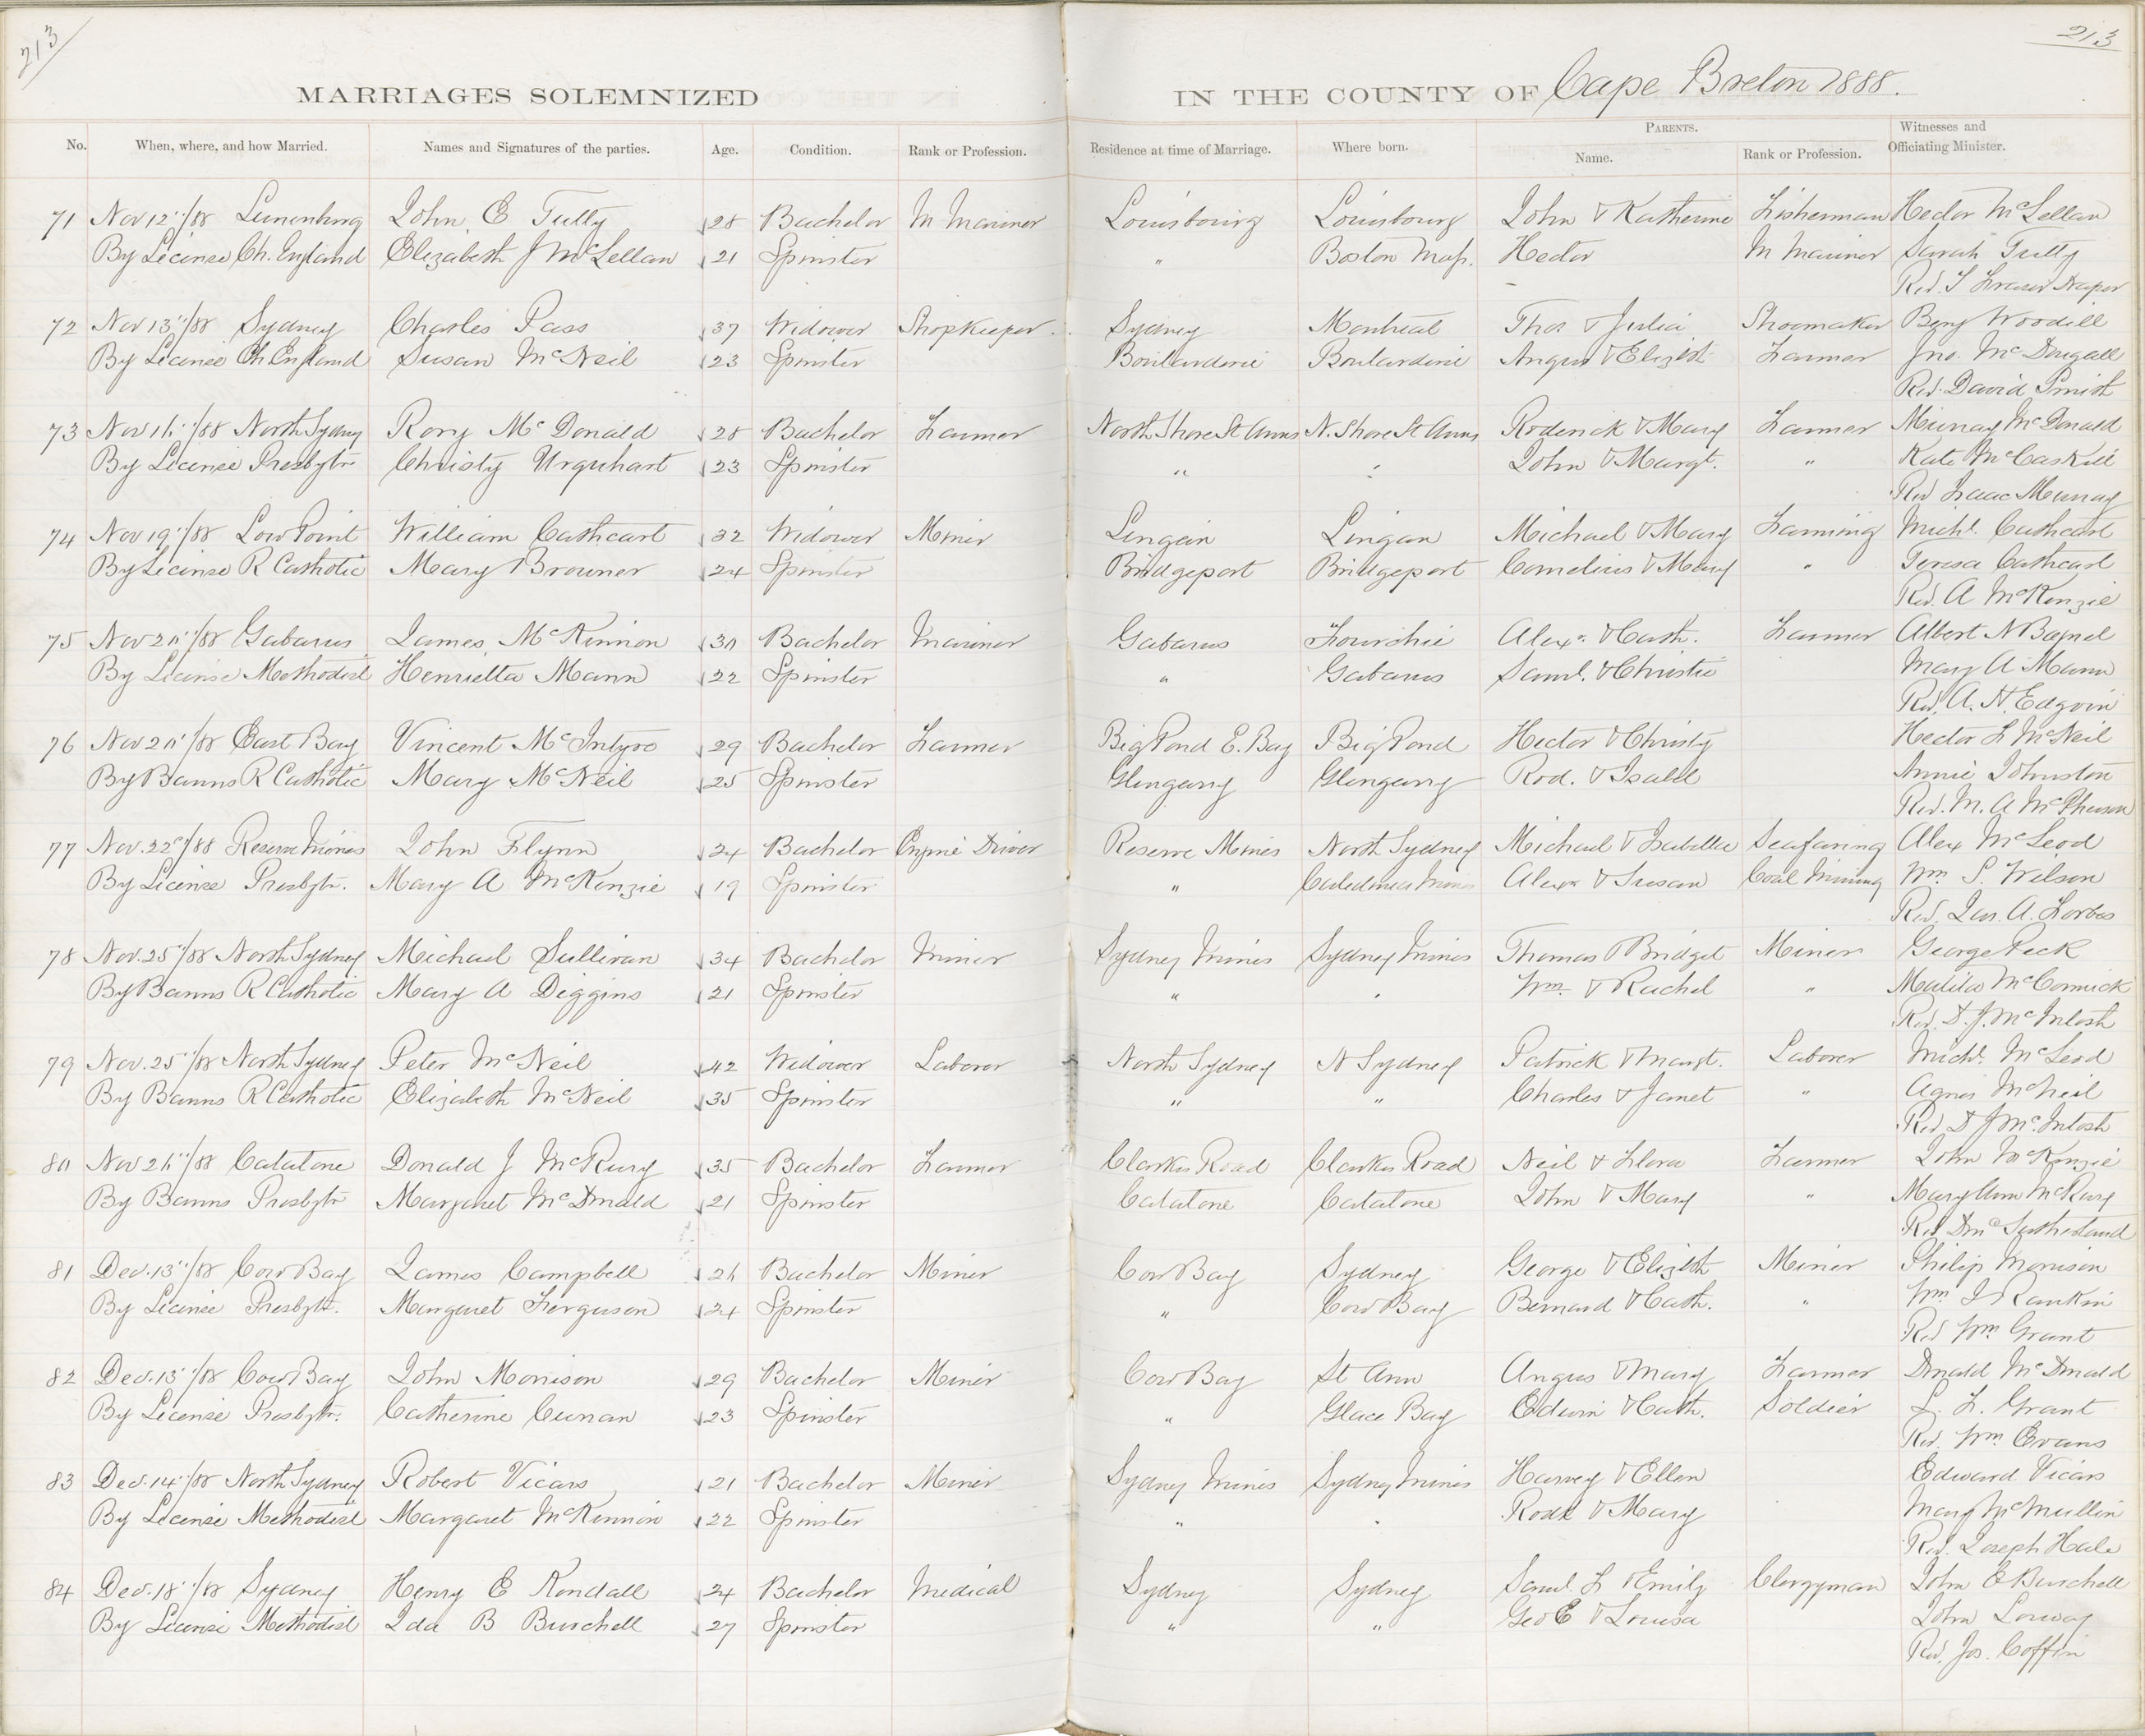 213
213
MARRIAGES SOLEMNIZED IN THE COUNTY OF Cape Breton 1888.
No. When, where, and how Married. Names and Signatures of the parties. Age. Condition. Rank or Profession. Residence at time of Marriage. Where born. PARENTS. Name. Rank or Profession. Witnesses and Officiating Minister.
71 Nov 12"/88 Lunenburg John E Tutty 28 Bachelor M Mariner Louisbourg Louisbourg John & Katherine Fisherman Hector McLellan
By License Ch. England Elizabeth J McLellan 21 Spinster " Boston Mass. Hector M Mariner Sarah Tutty
Rev. T Fraser Draper
72 Nov 13"/88 Sydney Charles Pass 37 Widower Shopkeeper Sydney Montreal Thos & Julia Shoemaker Benj Woodill
By License Ch England Susan McNeil 23 Spinster Boularderie Boularderie Angus & Elizbth Farmer Jno. McDougall
Rev. David Smith
73 Nov 16"/88 North Sydney Rory McDonald 28 Bachelor Farmer North Shore St Anns N. Shore St Anns Roderick & Mary Farmer Murray McDonald
By License Presbytn Christy Urquhart 23 Spinster " " John & Margt. " Kate McCaskill
Rev Isaac Murray
74 Nov 19"/88 Low Point William Cathcart 32 Widower Miner Lingan Lingan Michael & Mary Farming Michl. Cathcart
By License R Catholic Mary Browner 24 Spinster Bridgeport Bridgeport Cornelius & Mary " Teresa Cathcart
Rev. A McKenzie
75 Nov 20"/88 Gabarus James McKinnon 30 Bachelor Mariner Gabarus Fourchie Alexr. & Cath. Farmer Albert N Bagnel
By License Methodist Henrietta Mann 22 Spinster " Gabarus Saml. & Christie Mary A Mann
Rev. A. H.
76 Nov 20"/88 East Bay Vincent McIntyre 29 Bachelor Farmer Big Pond E. Bay Big Pond Hector & Christy Hector F McNeil
By Banns R Catholic Mary McNeil 25 Spinster Glengarry Glengarry Rod. & Isabll Annie Johnston
Rev. M. A McPherson
77 Nov. 22"/88 Reserve Mines John Flynn 24 Bachelor Engine Driver Reserve Mines North Sydney Michael & Isabella Seafaring Alex McLeod
By License Presbytn. Mary A McKenzie 19 Spinster " Caledonia Mines Alexr & Susan Coal Mining Wm S. Wilson
Rev. Jas. A. Forbes
78 Nov. 25"/88 North Sydney Michael Sullivan 34 Bachelor Miner Sydney Mines Sydney Mines Thomas & Bridget Miner George Peck
By Banns R Catholic Mary A Diggins 21 Spinster " " Wm. & Rachel " Matilda McCormick
Rev. D. J. McIntosh
79 Nov. 25"/88 North Sydney Peter McNeil 42 Widower Laborer North Sydney N Sydney Patrick & Margt. Laborer Michl. McLeod
By Banns R Catholic Elizabeth McNeil 35 Spinster " " Charles & Janet " Agnes McNeil
Rev D J McIntosh
80 Nov 26"/88 Catalone Donald J McRury 35 Bachelor Farmer Clarkes Road Clarkes Road Neil & Flora Farmer John McKenzie
By Banns Presbytn Margaret McDonald 21 Spinster Catalone Catalone John & Mary " Mary Ann McRury
Rev Sutherland
81 Dec. 13"/88 Cow Bay James Campbell 26 Bachelor Miner Cow Bay Sydney George & Elizbth Miner Philip Morrison
By License Presbytn. Margaret Ferguson 24 Spinster " Cow Bay Bernard & Cath. " Wm J Rankin
Rev Wm Grant
82 Dec. 13"/88 Cow Bay John Morrison 29 Bachelor Miner Cow Bay St Ann Angus & Mary Farmer Donald McDonald
By License Presbytn. Catherine Curran 23 Spinster " Glace Bay Edwin & Cath. Soldier L. F. Grant
Rev. Wm Evans
83 Dec. 14"/88 North Sydney Robert Vicars 21 Bachelor Miner Sydney Mines Sydney Mines Harvey & Ellen Edward Vicars
By License Methodist Margaret McKinnon 22 Spinster " " Rodk & Mary Mary McMullin
Rev. Joseph Hale
84 Dec. 18"/88 Sydney Henry E Kendall 24 Bachelor Medical Sydney Sydney Saml. F & Emily Clergyman John E Burchell
By License Methodist Ida B Burchell 27 Spinster " " Geo E & Louisa John Lorway
Rev. Jos. Coffin